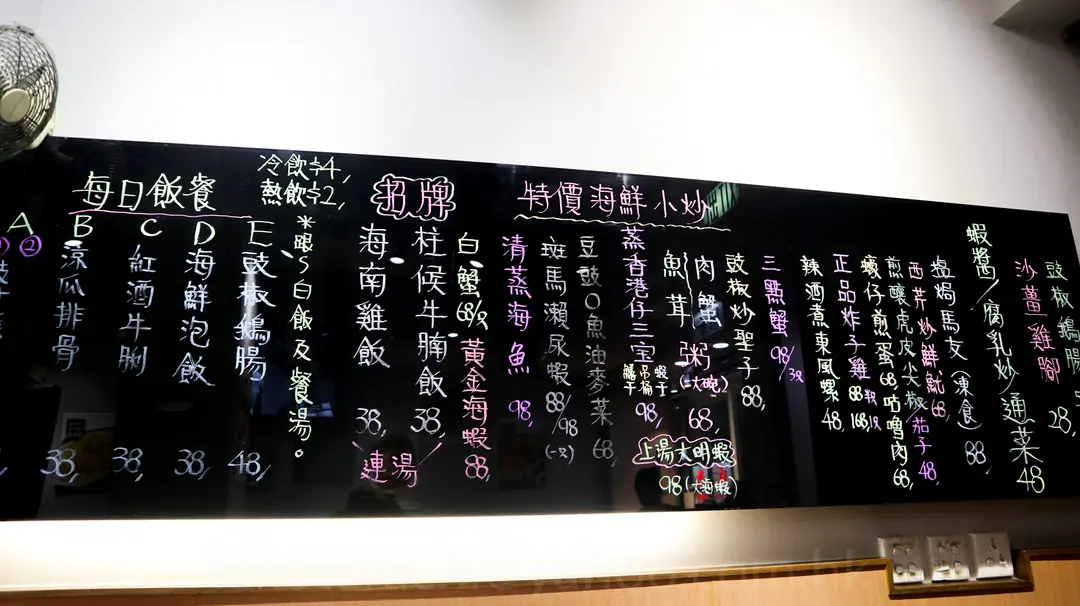 每日飯餐
冷飲$4,
熱飲$2,
A
① ②
B
涼瓜排骨
38,
C
紅酒牛脷
38,
D
海鮮泡飯
38,
E
豉椒鵝腸
48,
*跟 白飯及餐湯。
招牌
海南雞飯
38,
柱候牛腩飯
38,
連湯
特價海鮮小炒
白蟹 68/只
黃金海蝦 88,
清蒸海魚
98,
斑馬瀨尿蝦
88/98
(一只)
豆豉
魚油麥菜
68,
蒸香港仔三宝
98,
魚茸
肉蟹粥
(大碗)
68,
上湯大明蝦
98(大海蝦)
豉椒炒聖子
88,
三點蟹
98/3只
辣酒煮東風螺
48,
正品炸子雞
88半 168/只
蠔仔煎蛋 68,
咕嚕肉
68,
煎釀虎皮尖椒/茄子
48,
西芹炒鮮魷
68,
鹽焗馬友(凍食)
88,
蝦醬/腐乳炒/通菜
48
沙薑雞腳
豉椒鵝腸
28,